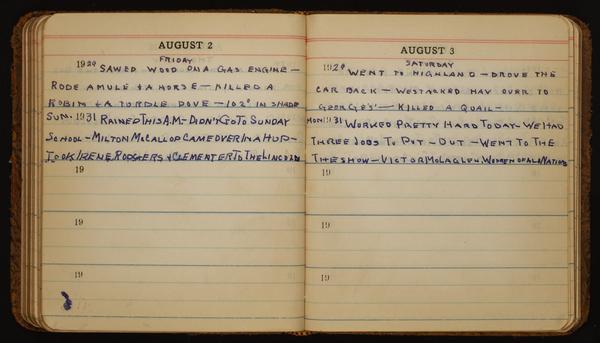 AUGUST 2
FRIDAY
1929 SAWED WOOD ON A GAS ENGINE —
RODE A MULE + A HORSE — KILLED A
ROBIN + A TURDLE DOVE — 102° IN SHADE
SUN. 1931 RAINED THIS A.M — DIDN'T GO TO SUNDAY
SCHOOL — MILTON MCCALLOP CAME OVER IN A HUP —
TOOK IRENE RODGERS + CLEMENTER TO THE LINCOLN
19
19
19
AUGUST 3
SATURDAY
1929 WENT TO HIGHLAND — DROVE THE
CAR BACK — WE STACKED HAY OVER TO
GEORGES' — KILLED A QUAIL —
MON 1931 WORKED PRETTY HARD TODAY — WE HAD
THREE JOBS TO PUT — OUT — WENT TO THE
THE SHOW — VICTOR MCLAGLEN WOMEN OF ALL NATIONS
19
19
19